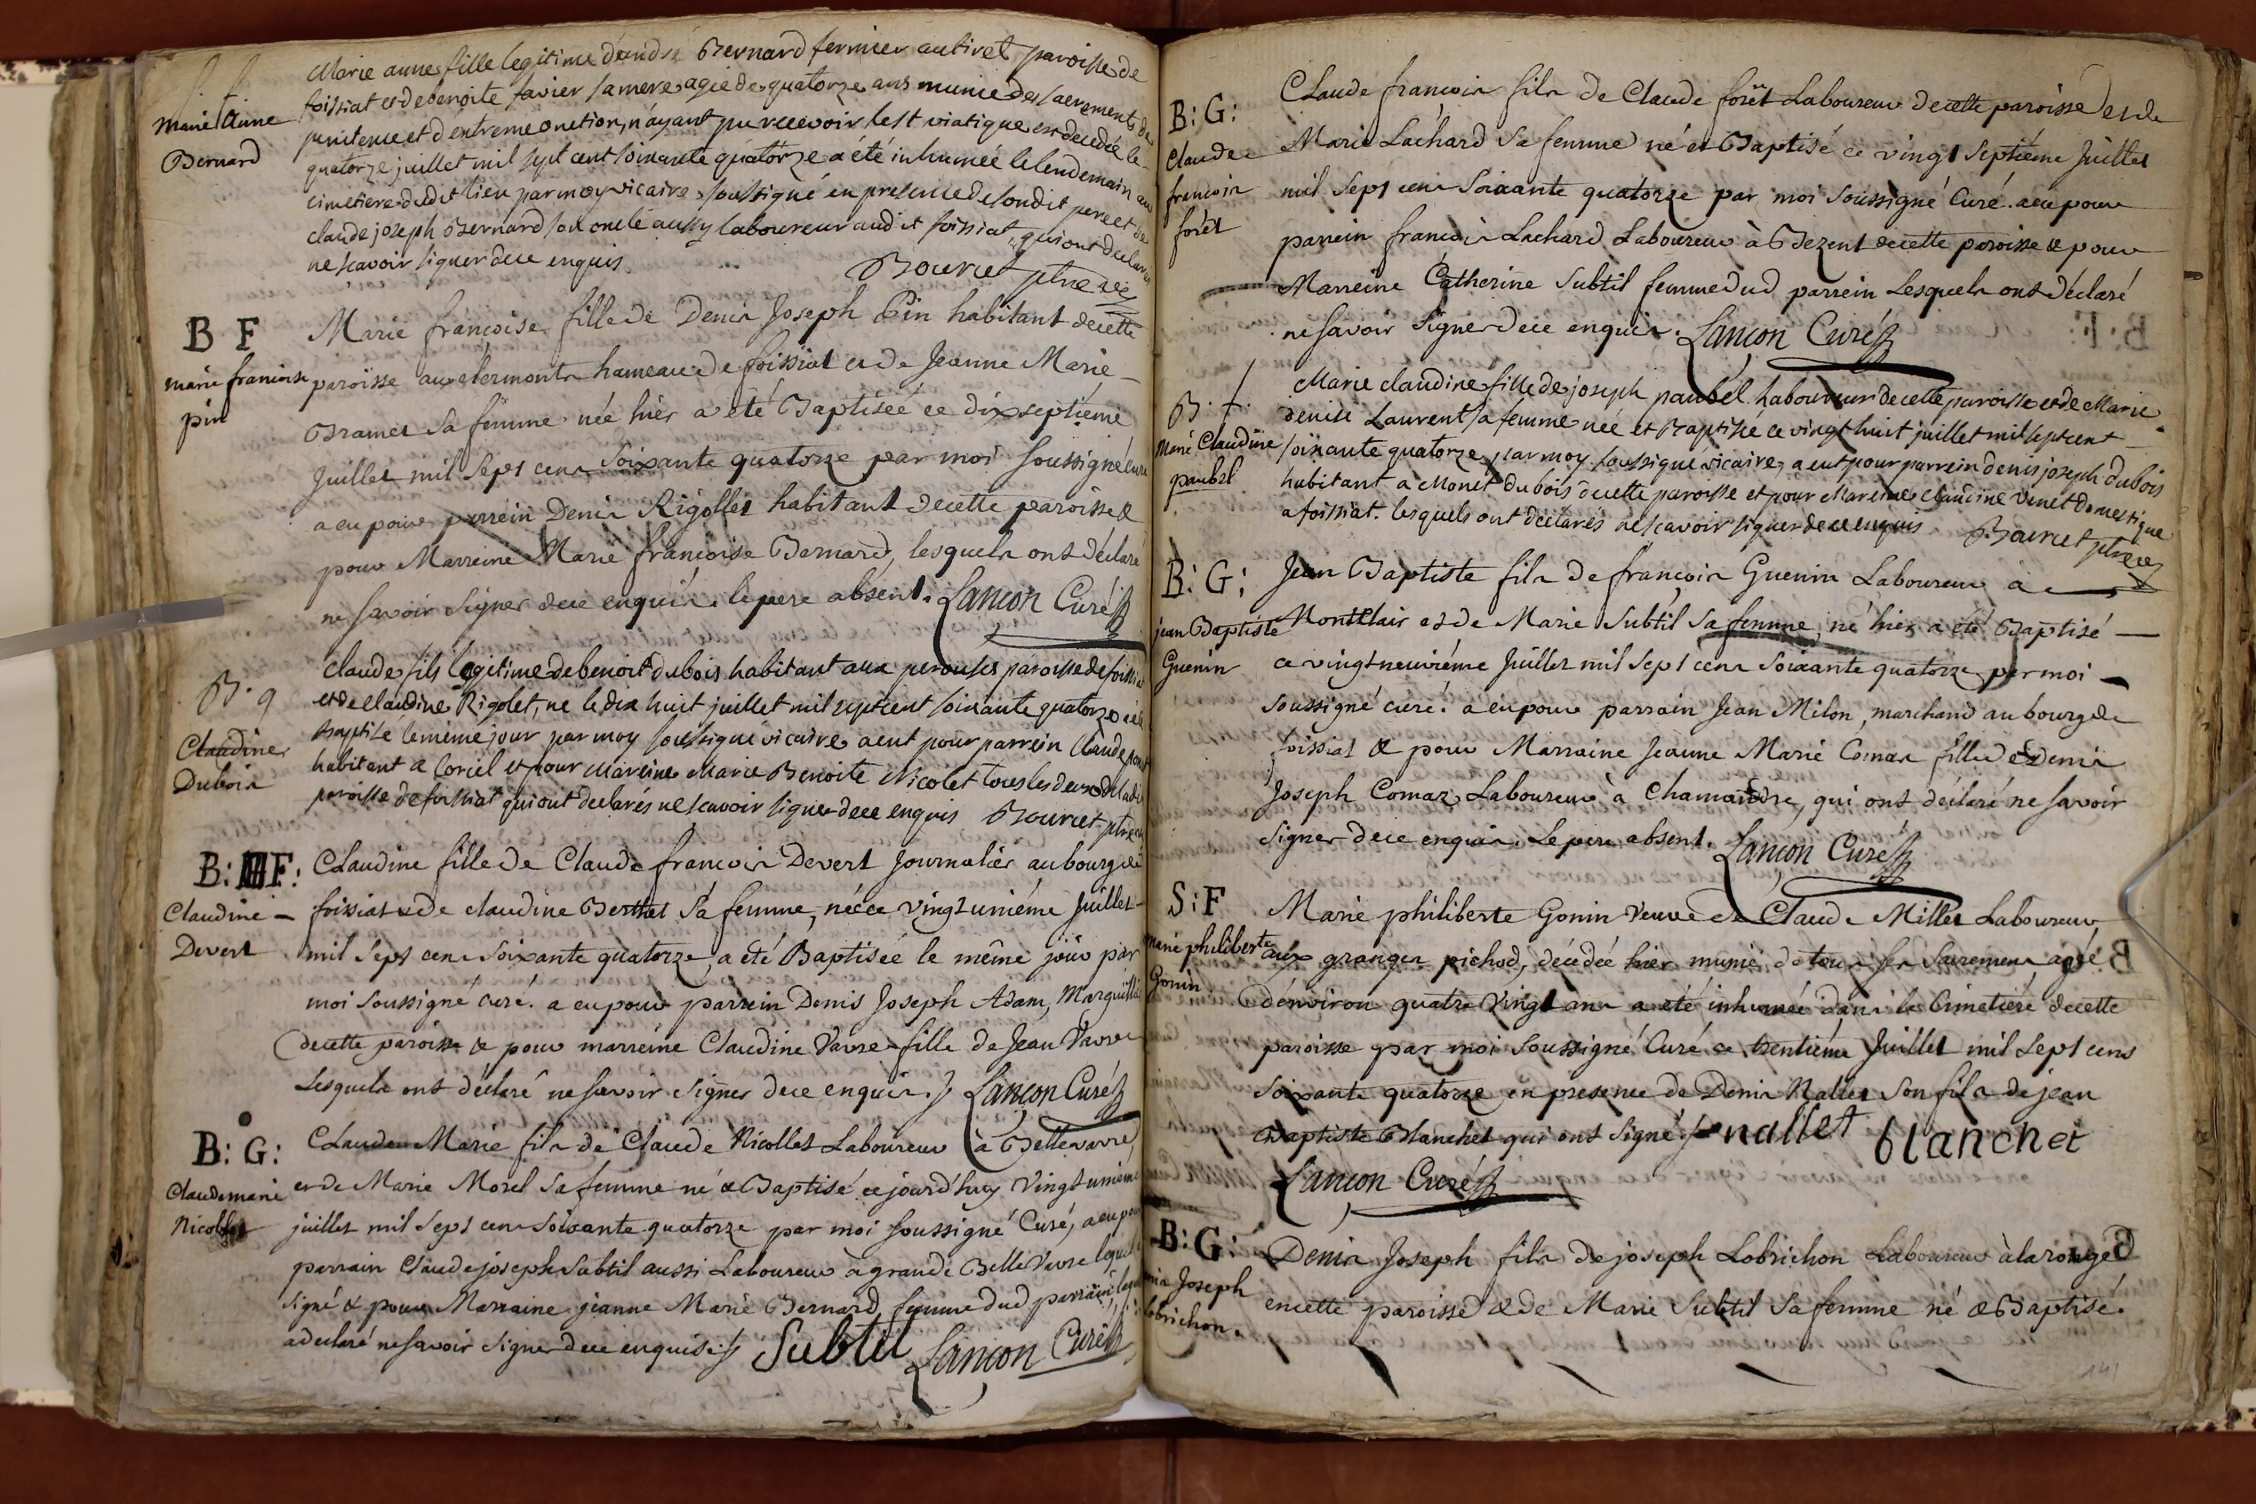 S. f.
Marie Anne
Bernard
Marie anne fille legitime d'andré Bernard fermier au tiret paroisse de
foissiat et de benoite favier sa mere agée de quatorze ans munie des sacrements de
penitence et d'extreme onction, n'ayant pu recevoir le st viatique est decedée le
quatorze juillet mil sept cent soixante quatorze a eté inhumée le lendemain au
cimetiere dudit lieu par moy vicaire soussigné en presence de sondit pere et de
claude joseph Bernard son oncle aussy laboureur audit foissiat qui ont declaré
ne scavoir signer de ce enquis
Bourcet ptre vic
B F
marie francoise
pin
Marie françoise fille de Denis Joseph Pin habitant de cette
paroisse aux clermonts hameau de foissiat et de Jeanne Marie
Bramet Sa femme née hier a été Baptisée ce dix septiéme
Juillet mil Sept cens Soixante quatorze par moi Soussigné curé
a eu pour parrein Denis Rigollet habitant de cette paroisse &
pour Marreine Marie françoise Bernard, lesquels ont déclaré
ne Savoir Signer de ce enquis. le pere absent. Lançon Curé
B. g
Claudine
Dubois
Claude fils legitime de benoit dubois habitant aux perouses paroisse de foissiat
et de claudine Rigolet, ne le dix huit juillet mil sept cent soixante quatorze a été
baptisé le même jour par moy soussigné vicaire a eut pour parrein Claude
habitant a Coriel et pour Mareine Marie Benoite Nicolet tous les deux de ladite
paroisse de foissiat qui ont declarés ne scavoir signer de ce enquis Bourcet ptre vic
B: F:
Claudine
Devert
Claudine fille de Claude francois Devert Journalier au bourg de
foissiat & de claudine Berthet Sa femme, née ce vingt uniéme Juillet
mil Sept cens Soixante quatorze, a été Baptisée le même jour par
moi Soussigné curé. a eu pour parrein Denis Joseph Adam, Marguillier
de cette paroisse & pour marreine Claudine Vavre fille de Jean Vavre
Lesquels ont déclaré ne Savoir Signer de ce enquis. Lançon Curé
B: G:
Claude marie
Nicollet
Claude Marie fils de Claude Nicollet Laboureur à Bellevavre
et de Marie Morel Sa femme né & Baptisé ce jourd'huy Vingt uniéme
juillet mil Sept cens Soixante quatorze par moi Soussigné Curé, a eu pour
parrain Claude joseph Subtil aussi Laboureur à grande Belle Vavre lequel a
Signé & pour Marraine jeanne Marie Bernard, femme dud parrain, laquelle
a declaré ne Savoir Signer de ce enquise. Subtil Lançon Curé
B: G:
Claude
francois
forêt
Claude francois fils de Claude forêt Laboureur de cette paroisse et de
Marie Lachard Sa femme né et Baptisé ce vingt Septiéme Juillet
mil Sept cens Soixante quatorze par moi Soussigné Curé. a eu pour
parrein francois Lachard Laboureur à Bezent de cette paroisse & pour
Marreine Catherine Subtil femme dud parrein Lesquels ont déclaré
ne Savoir Signer de ce enquis. Lançon Curé
B. f.
Marie Claudine
paubel
Marie claudine fille de joseph paubel laboureur de cette paroisse et de Marie
denise Laurent sa femme née et Baptisée ce vingt huit juillet mil sept cent
soixante quatorze, par moy soussigné vicaire, a eut pour parrein denis joseph dubois
habitant a Monet dubois de cette paroisse et pour Mareine claudine Venet domestique
a foissiat. lesquels ont declarés ne scavoir signer de ce enquis Bourcet ptre vic
B: G:
jean Baptiste
Guenin
Jean Baptiste fils de françois Guenin Laboureur à
Montclair et de Marie Subtil Sa femme, né hier a été Baptisé
ce vingt neuviéme Juillet mil Sept cens Soixante quatorze par moi
Soussigné curé. a eu pour parrain Jean Milon, marchand au bourg de
foissiat & pour Marraine Jeanne Marie Comas fille de Denis
Joseph Comaz Laboureur à Chamandre, qui ont déclaré ne Savoir
Signer de ce enquis. Le pere absent. Lançon Curé
S: F
Marie philiberte
Gonin
Marie philiberte Gonin Veuve de Claude Millet Laboureur
aux granges pichod, décédée hier munie de tous ses Sacremens agée
d'environ quatre Vingt ans a été inhumée dans le Cimetiére de cette
paroisse par moi Soussigné Curé ce trentiéme Juillet mil Sept cens
Soixante quatorze en presence de Denis Nallet Son fils de jean
Baptiste Blanchet qui ont Signé. nallet blanchet
Lançon Curé
B: G:
Joseph
Lobrichon.
Denis Joseph fils de joseph Lobrichon Laboureur à la rouge
en cette paroisse & de Marie Subtil Sa femme né & Baptisé.
141